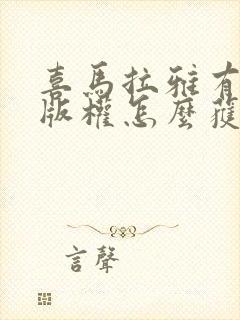 喜馬拉雅有
版權怎麼獲
言聲